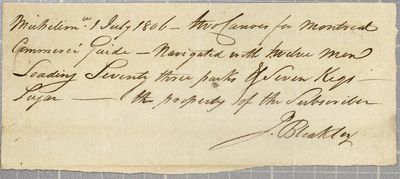 Michilim.ac 1 July 1806 — two Canoes for Montreal
Commercé Guide — Navigated with twelve Men
Loading Seventy three packs & Seven Kegs
Sugar — the property of the Subscriber
J. Bleakley